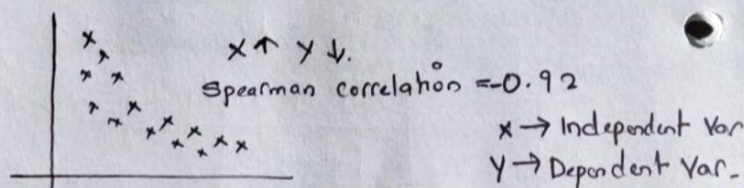 X↑ Y↓.
Spearman correlation = -0.92
X → Independent Var
Y → Dependent Var.